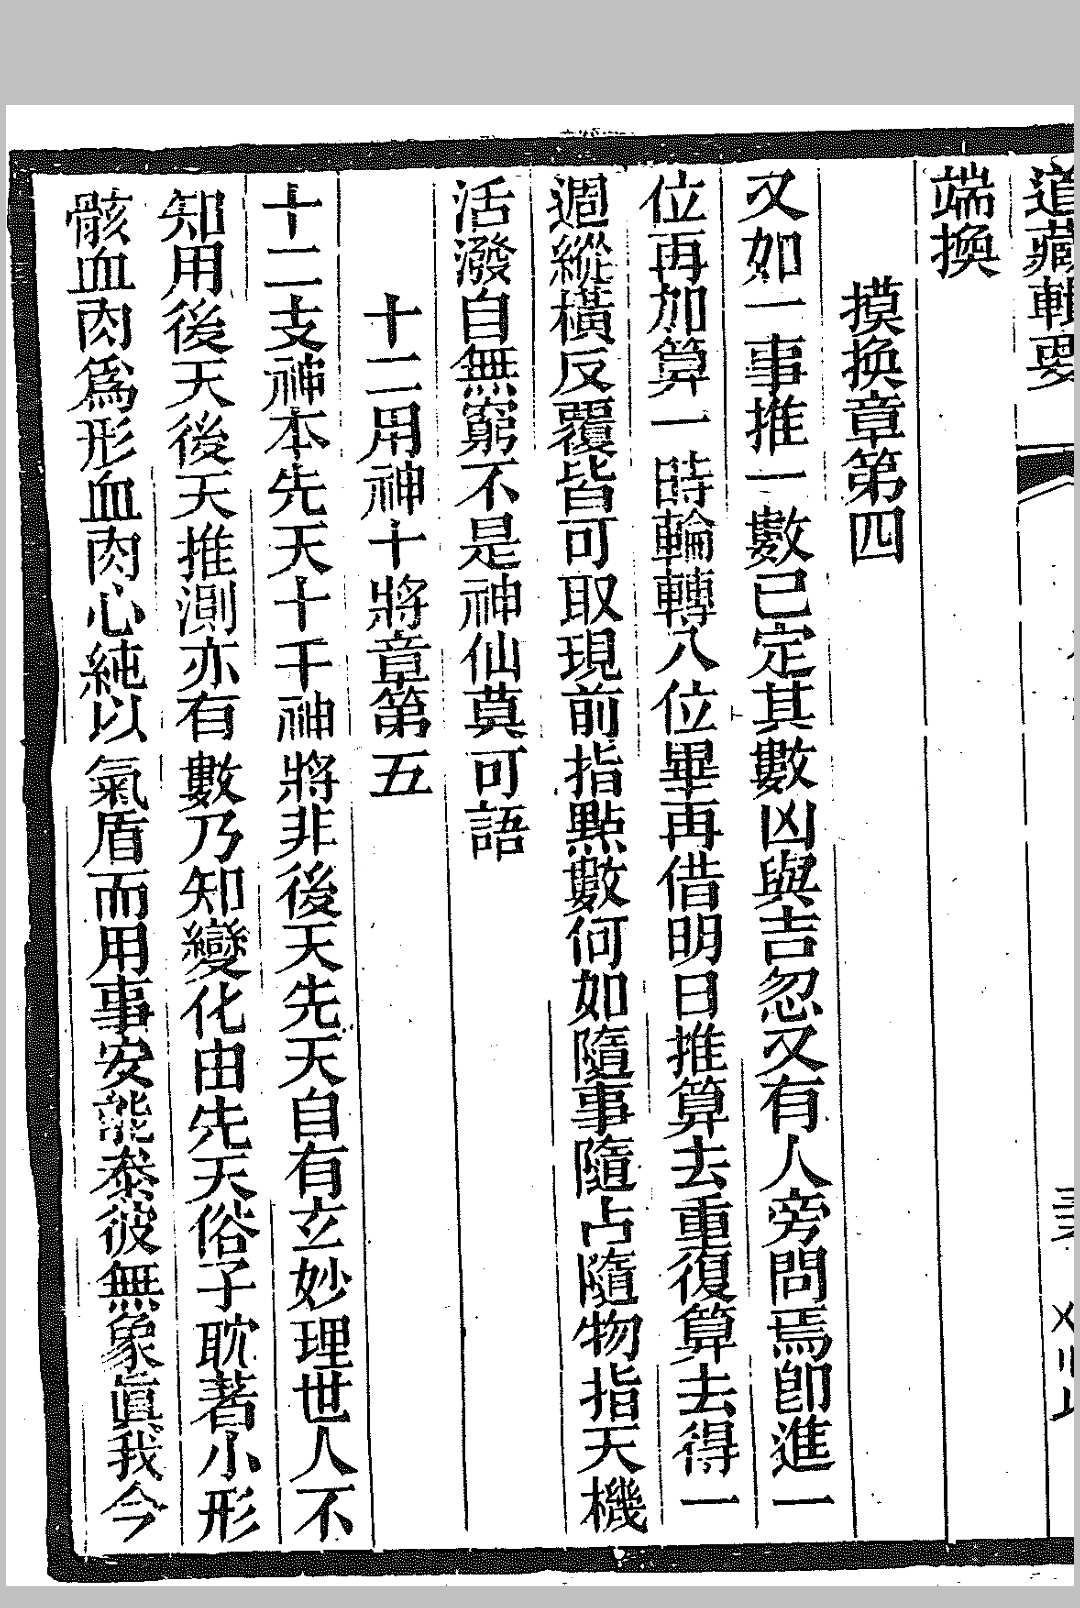 道藏輯要
端換
摸換章第四
又如一事推一數已定其數凶與吉忽又有人旁問焉卽進一
位再加算一時輪轉八位畢再借明日推算去重復算去得一
週縱橫反覆皆可取現前指點數何如隨事隨占隨物指天機
活潑自無窮不是神仙莫可語
十二用神十將章第五
十二支神本先天十干神將非後天先天自有玄妙理世人不
知用後天後天推測亦有數乃知變化由先天俗子耽著小形
骸血肉爲形血肉心純以氣盾而用事安能泰彼無象眞我今